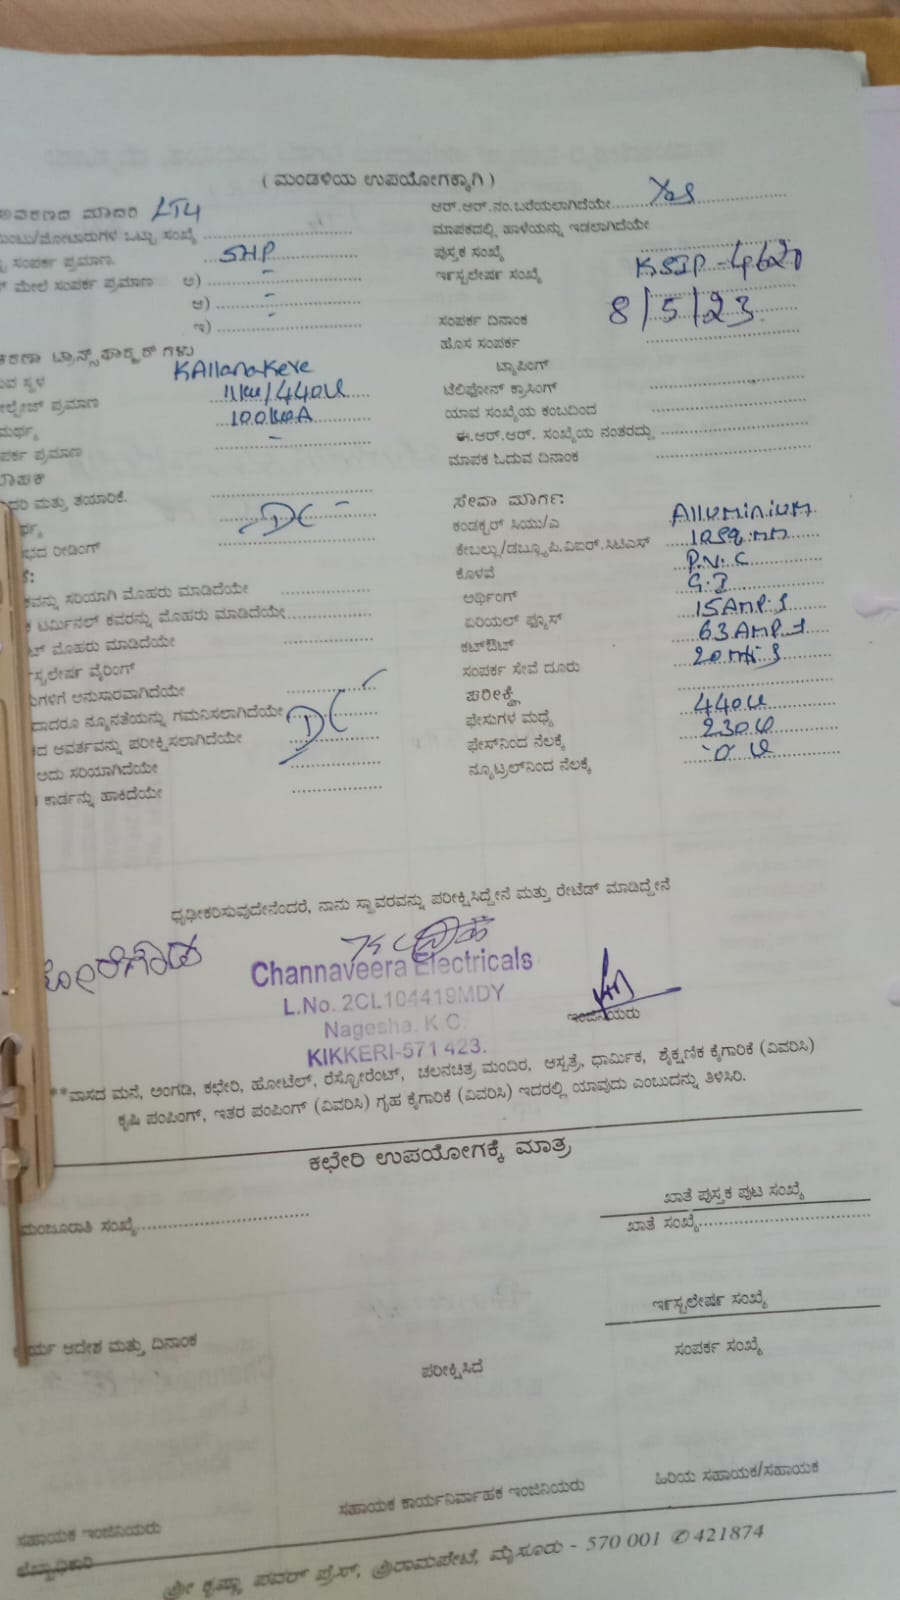 ( ಮಂಡಳಿಯ ಉಪಯೋಗಕ್ಕಾಗಿ )
ಮಾದರಿ LT4
ಒಟ್ಟು ಸಂಖ್ಯೆ
ಸಂಪರ್ಕ ಪ್ರಮಾಣ. 5HP
ಮೇಲೆ ಸಂಪರ್ಕ ಪ್ರಮಾಣ ಅ) -
ಆ) -
ಇ) -
ಟ್ರಾನ್ಸ್‌ಫಾರ್ಮರ್ ಗಳು
ಸ್ಥಳ KAllanakere
ಪ್ರಮಾಣ 11kv/440v
100kvA
ಪ್ರಮಾಣ -
ಮತ್ತು ತಯಾರಿಕೆ.
DC
ರೀಡಿಂಗ್
ಸರಿಯಾಗಿ ಮೊಹರು ಮಾಡಿದೆಯೇ
ಟರ್ಮಿನಲ್ ಕವರನ್ನು ಮೊಹರು ಮಾಡಿದೆಯೇ
ಮೊಹರು ಮಾಡಿದೆಯೇ
ವೈರಿಂಗ್
ಅನುಸಾರವಾಗಿದೆಯೇ
ನ್ಯೂನತೆಯನ್ನು ಗಮನಿಸಲಾಗಿದೆಯೇ DC
ಆವರ್ತವನ್ನು ಪರೀಕ್ಷಿಸಲಾಗಿದೆಯೇ
ಅದು ಸರಿಯಾಗಿದೆಯೇ
ಕಾರ್ಡನ್ನು ಹಾಕಿದೆಯೇ
ಆರ್.ಆರ್.ನಂ.ಬರೆಯಲಾಗಿದೆಯೇ Yes
ಮಾಪಕದಲ್ಲಿ ಹಾಳೆಯನ್ನು ಇಡಲಾಗಿದೆಯೇ
ಪುಸ್ತಕ ಸಂಖ್ಯೆ
ಇನ್ಸ್ಟಲೇಷನ್ ಸಂಖ್ಯೆ KSIP-4620
ಸಂಪರ್ಕ ದಿನಾಂಕ 8/5/23
ಹೊಸ ಸಂಪರ್ಕ
ಟ್ಯಾಪಿಂಗ್
ಟೆಲಿಫೋನ್ ಕ್ರಾಸಿಂಗ್
ಯಾವ ಸಂಖ್ಯೆಯ ಕಂಬದಿಂದ
ಈ.ಆರ್.ಆರ್. ಸಂಖ್ಯೆಯ ನಂತರದ್ದು
ಮಾಪಕ ಓದುವ ದಿನಾಂಕ
ಸೇವಾ ಮಾರ್ಗ:
ಕಂಡಕ್ಟರ್ ಸಿಯು/ಎ AlluMiniuM
ಕೇಬಲ್ಲು/ಡಬ್ಲ್ಯೂ.ಪಿ.ವಿಐಆರ್.ಸಿಟಿಎಸ್ 10sq.mm
ಕೊಳವೆ P.V.C
ಅರ್ಥಿಂಗ್ G.I
ಏರಿಯಲ್ ಫ್ಯೂಸ್ 15AMP.s
ಕಟ್‌ಔಟ್ 63AMP.s
ಸಂಪರ್ಕ ಸೇವೆ ದೂರು 20mts
ಪರೀಕ್ಷೆ
ಫೇಸುಗಳ ಮಧ್ಯೆ 440v
ಫೇಸ್‌ನಿಂದ ನೆಲಕ್ಕೆ 230v
ನ್ಯೂಟ್ರಲ್‌ನಿಂದ ನೆಲಕ್ಕೆ 'o' v
ಧೃಢೀಕರಿಸುವುದೇನೆಂದರೆ, ನಾನು ಸ್ಥಾವರವನ್ನು ಪರೀಕ್ಷಿಸಿದ್ದೇನೆ ಮತ್ತು ರೇಟೆಡ್ ಮಾಡಿದ್ದೇನೆ
Channaveera Electricals
L.No. 2CL104419MDY
Nagesha. K C.
KIKKERI-571 423.
ಇಂಜಿನಿಯರು
**ವಾಸದ ಮನೆ, ಅಂಗಡಿ, ಕಛೇರಿ, ಹೋಟೆಲ್, ರೆಸ್ಟೋರೆಂಟ್, ಚಲನಚಿತ್ರ ಮಂದಿರ, ಆಸ್ಪತ್ರೆ, ಧಾರ್ಮಿಕ, ಶೈಕ್ಷಣಿಕ ಕೈಗಾರಿಕೆ (ವಿವರಿಸಿ)
ಕೃಷಿ ಪಂಪಿಂಗ್, ಇತರ ಪಂಪಿಂಗ್ (ವಿವರಿಸಿ) ಗೃಹ ಕೈಗಾರಿಕೆ (ವಿವರಿಸಿ) ಇದರಲ್ಲಿ ಯಾವುದು ಎಂಬುದನ್ನು ತಿಳಿಸಿರಿ.
ಕಛೇರಿ ಉಪಯೋಗಕ್ಕೆ ಮಾತ್ರ
ಮಂಜೂರಾತಿ ಸಂಖ್ಯೆ
ಖಾತೆ ಪುಸ್ತಕ ಪುಟ ಸಂಖ್ಯೆ
ಖಾತೆ ಸಂಖ್ಯೆ
ಇನ್ಸ್ಟಲೇಷನ್ ಸಂಖ್ಯೆ
ಆದೇಶ ಮತ್ತು ದಿನಾಂಕ
ಪರೀಕ್ಷಿಸಿದೆ
ಸಂಪರ್ಕ ಸಂಖ್ಯೆ
ಸಹಾಯಕ ಇಂಜಿನಿಯರು
ಸಹಾಯಕ ಕಾರ್ಯನಿರ್ವಾಹಕ ಇಂಜಿನಿಯರು
ಹಿರಿಯ ಸಹಾಯಕ/ಸಹಾಯಕ
ಶ್ರೀ ಕೃಷ್ಣಾ ಪವರ್ ಪ್ರೆಸ್, ಶ್ರೀರಾಮಪೇಟೆ, ಮೈಸೂರು - 570 001 ✆ 421874